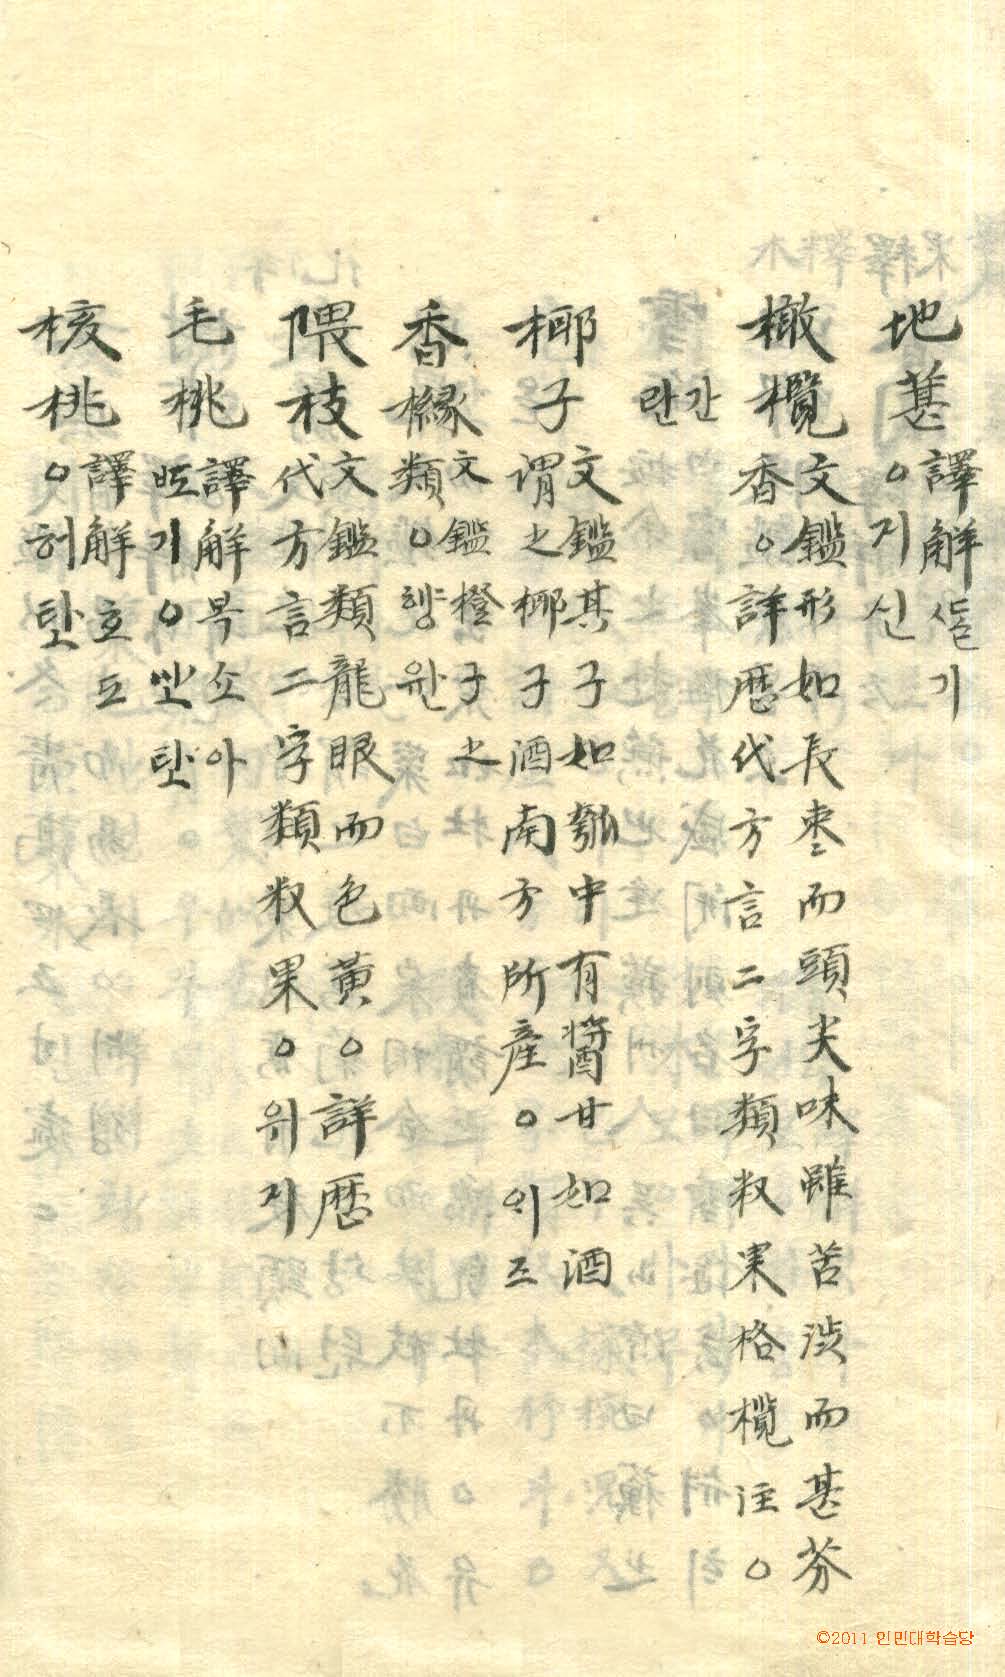 地葚 譯解 ᄯᅡᆯ기
○지신
橄欖 文鑑形如長枣而頭尖味雖苦澁而甚芬
香○詳歷代方言二字類叙果格欖注○
간
란
椰子 文鑑其子如瓠中有醬甘如酒
謂之椰子酒南方所產○이ᅀᅳ
香櫞 文鑑橙子之
類○향원
隈枝 文鑑類龍眼而色黃○詳歷
代方言二字類叙果○위지
毛桃 譯解 복쇼아
기○
核桃 譯解 호도
○허탇
©2011 인민대학습당